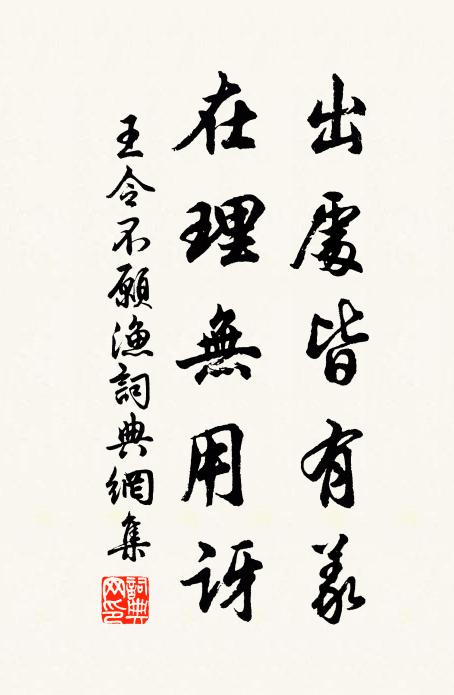 出處皆有義
在理無用訝
王令不願漁詞典網集
詞典網印